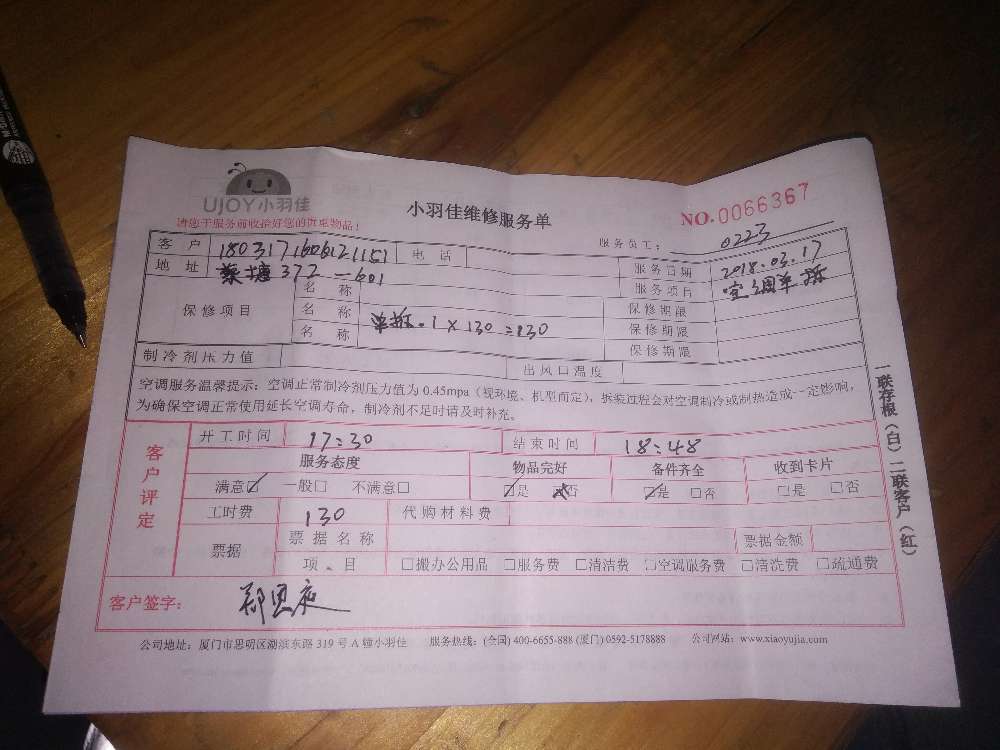 UJOY小羽佳
小羽佳维修服务单
NO.0066367
请您于服务前收拾好您的贵重物品！
服务员工： 0223
客户 180317160612115 电话
服务日期 2018.03.17
地址 蔡塘372-601
服务项目 空调单拆
保修项目
名称
保修期限
名称 单拆.1×130=130
保修期限
名称
保修期限
制冷剂压力值
出风口温度
空调服务温馨提示：空调正常制冷剂压力值为 0.45mpa（视环境、机型而定），拆装过程会对空调制冷或制热造成一定影响，
为确保空调正常使用延长空调寿命，制冷剂不足时请及时补充。
一联存根（白）二联客户（红）
客户评定
开工时间 17:30 结束时间 18:48
服务态度 物品完好 备件齐全 收到卡片
满意☑ 一般□ 不满意□ ☑是 □否 ☑是 □否 □是 □否
工时费 130 代购材料费
票据
票据名称 票据金额
项目 □搬办公用品 □服务费 □清洁费 □空调服务费 □清洗费 □疏通费
客户签字：
公司地址：厦门市思明区湖滨东路 319 号 A 幢小羽佳 服务热线：(全国) 400-6655-888 (厦门) 0592-5178888 公司网站：www.xiaoyujia.com